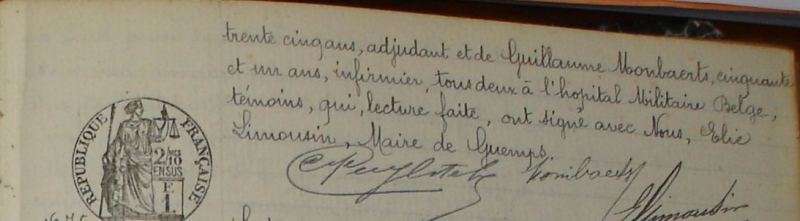 trente cinq ans, adjudant et de Guillaume Monbaerts, cinquante
et un ans, infirmier, tous deux à l'hopital Militaire Belge,
témoins, qui, lecture faite, ont signé avec Nous, Elie
Limousin, Maire de Guemps.
RÉPUBLIQUE FRANÇAISE
2/10
EN SUS
E
1
Elimousin